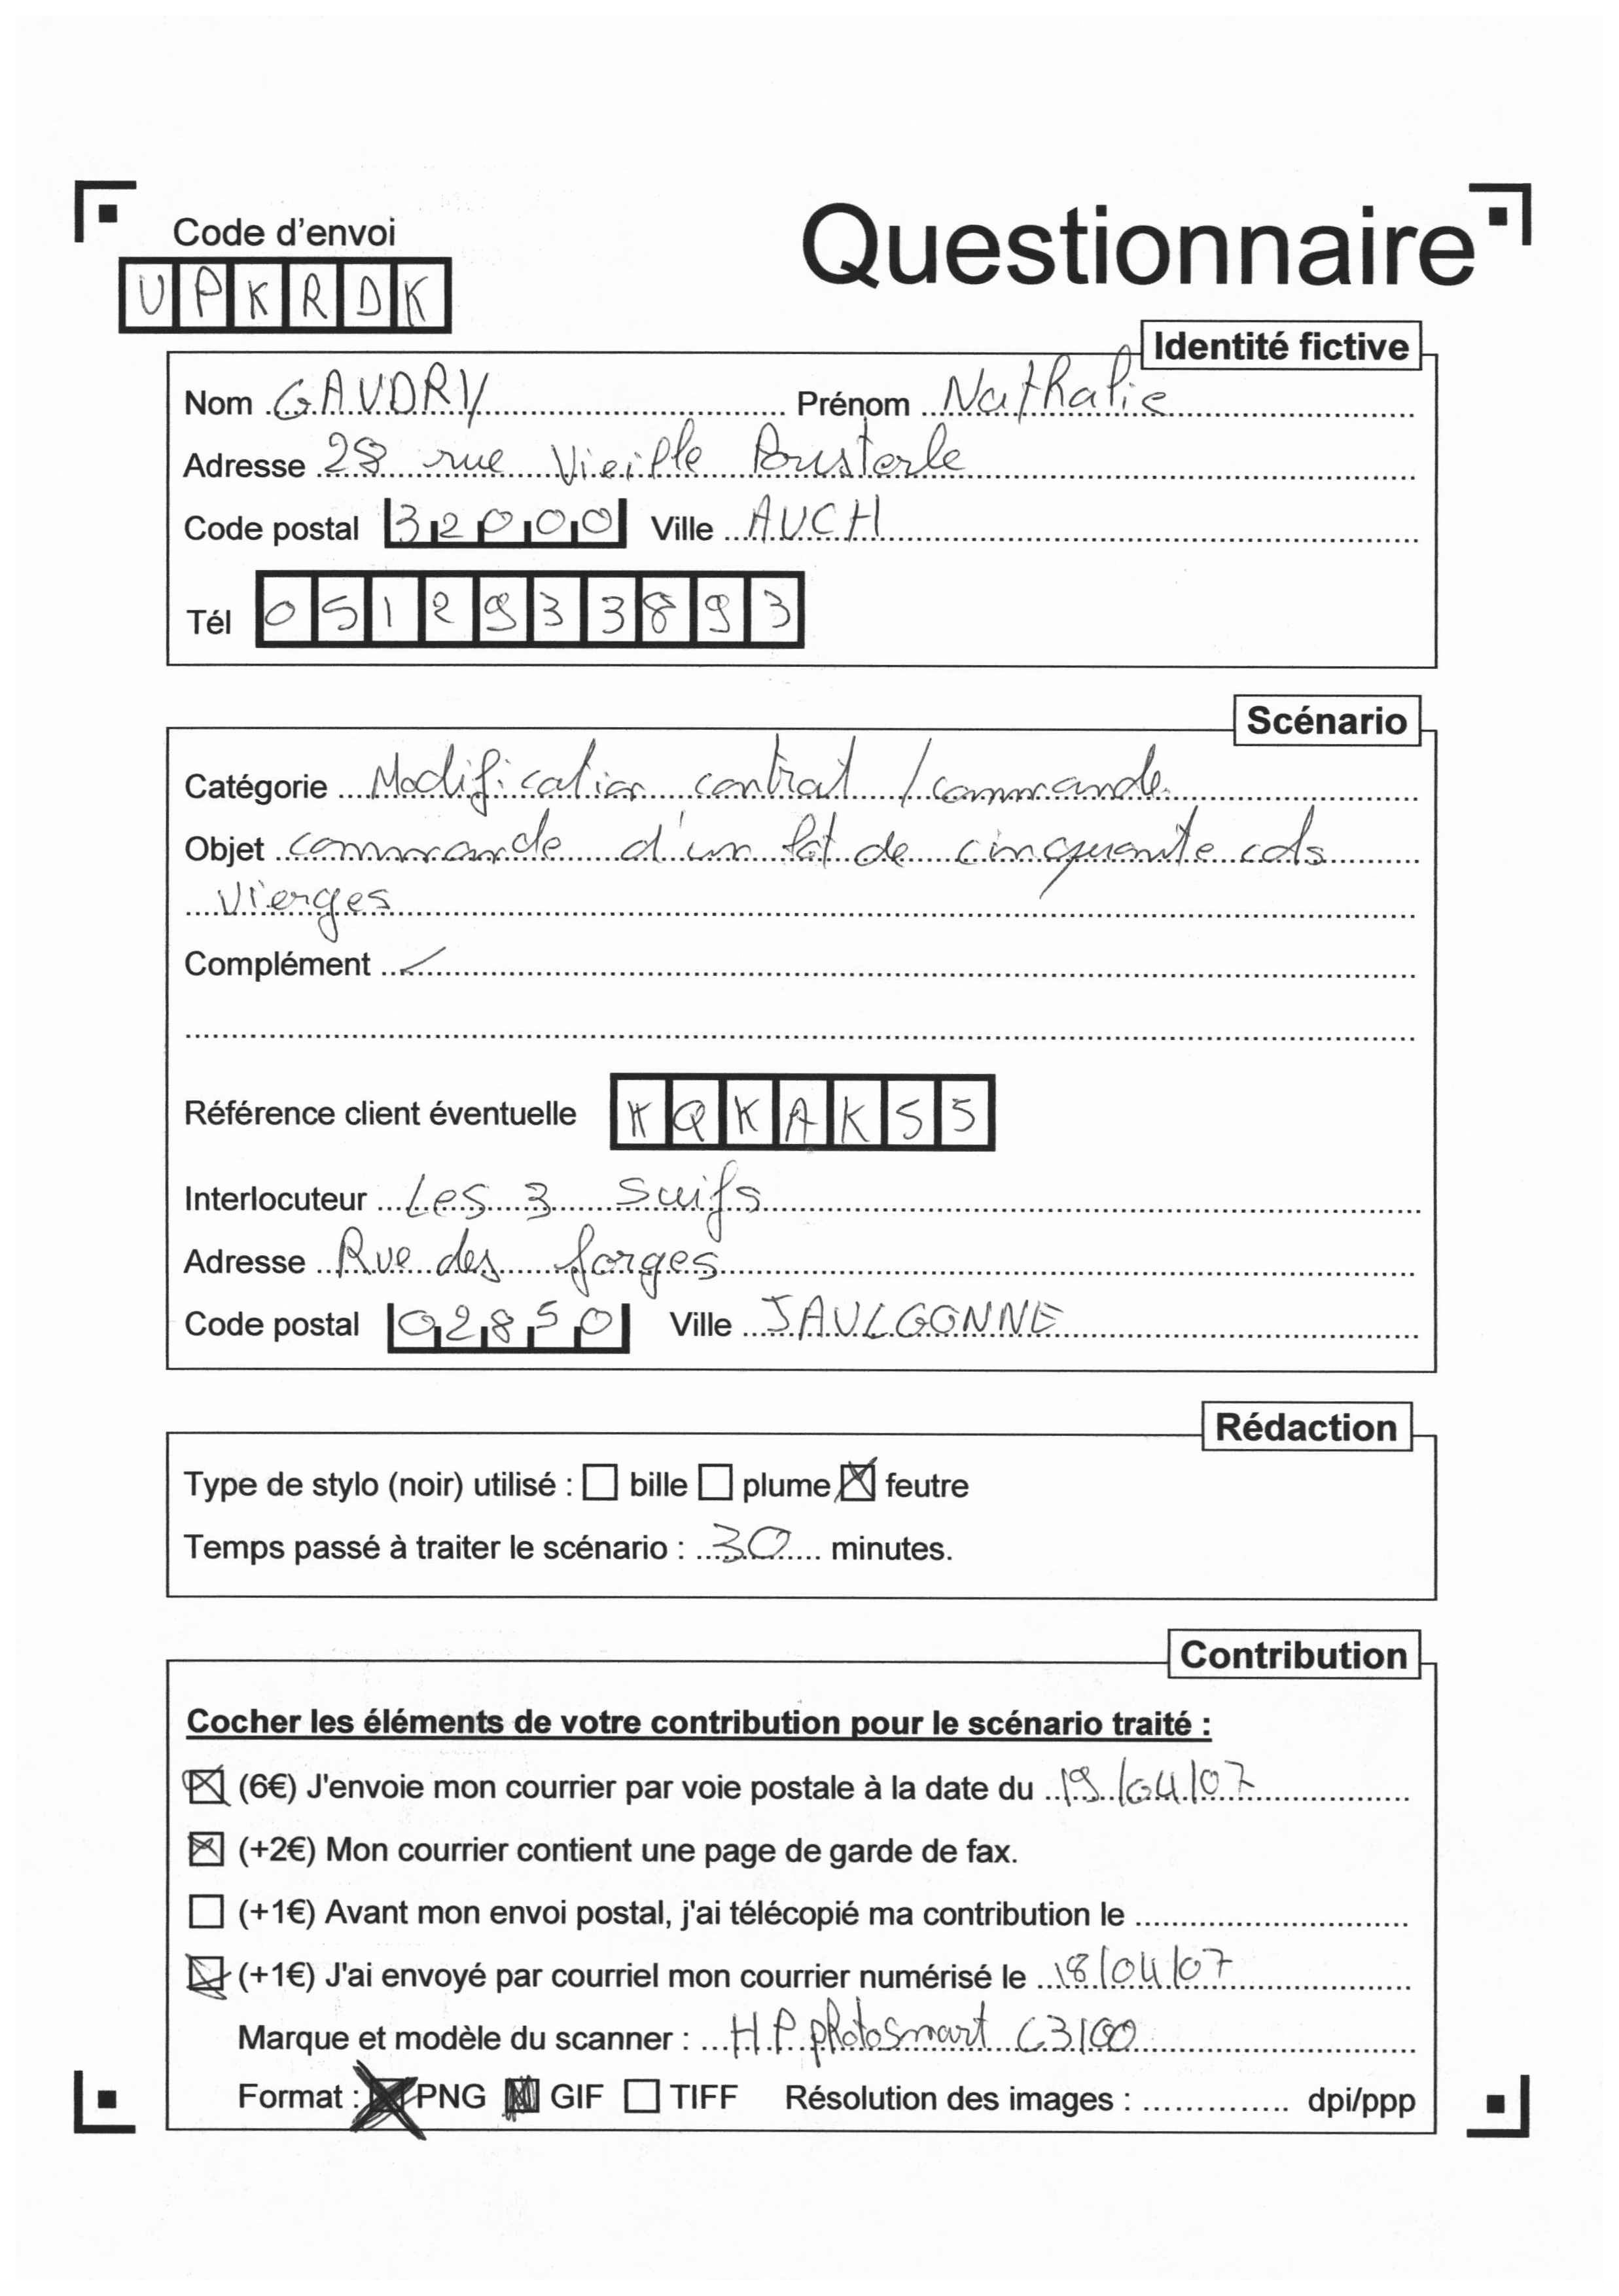 Code d'envoi
Questionnaire
UPKRDK
Identité fictive
Nom GAUDRY Prénom Nathalie
Adresse 28 rue Vieille Pousterle
Code postal 32000 Ville AUCH
Tél 0512933893
Scénario
Catégorie Modification contrat / commande.
Objet commande d'un lot de cinquante cds
vierges
Complément /
Référence client éventuelle KQKAKS5
Interlocuteur Les 3 Suifs
Adresse Rue des forges
Code postal 02850 Ville JAULGONNE
Rédaction
Type de stylo (noir) utilisé : bille plume feutre
Temps passé à traiter le scénario : 30 minutes.
Contribution
Cocher les éléments de votre contribution pour le scénario traité :
(6€) J'envoie mon courrier par voie postale à la date du 19/04/07
(+2€) Mon courrier contient une page de garde de fax.
(+1€) Avant mon envoi postal, j'ai télécopié ma contribution le
(+1€) J'ai envoyé par courriel mon courrier numérisé le 18/04/07
Marque et modèle du scanner : HP photosmart C3100
Format : PNG GIF TIFF Résolution des images : dpi/ppp